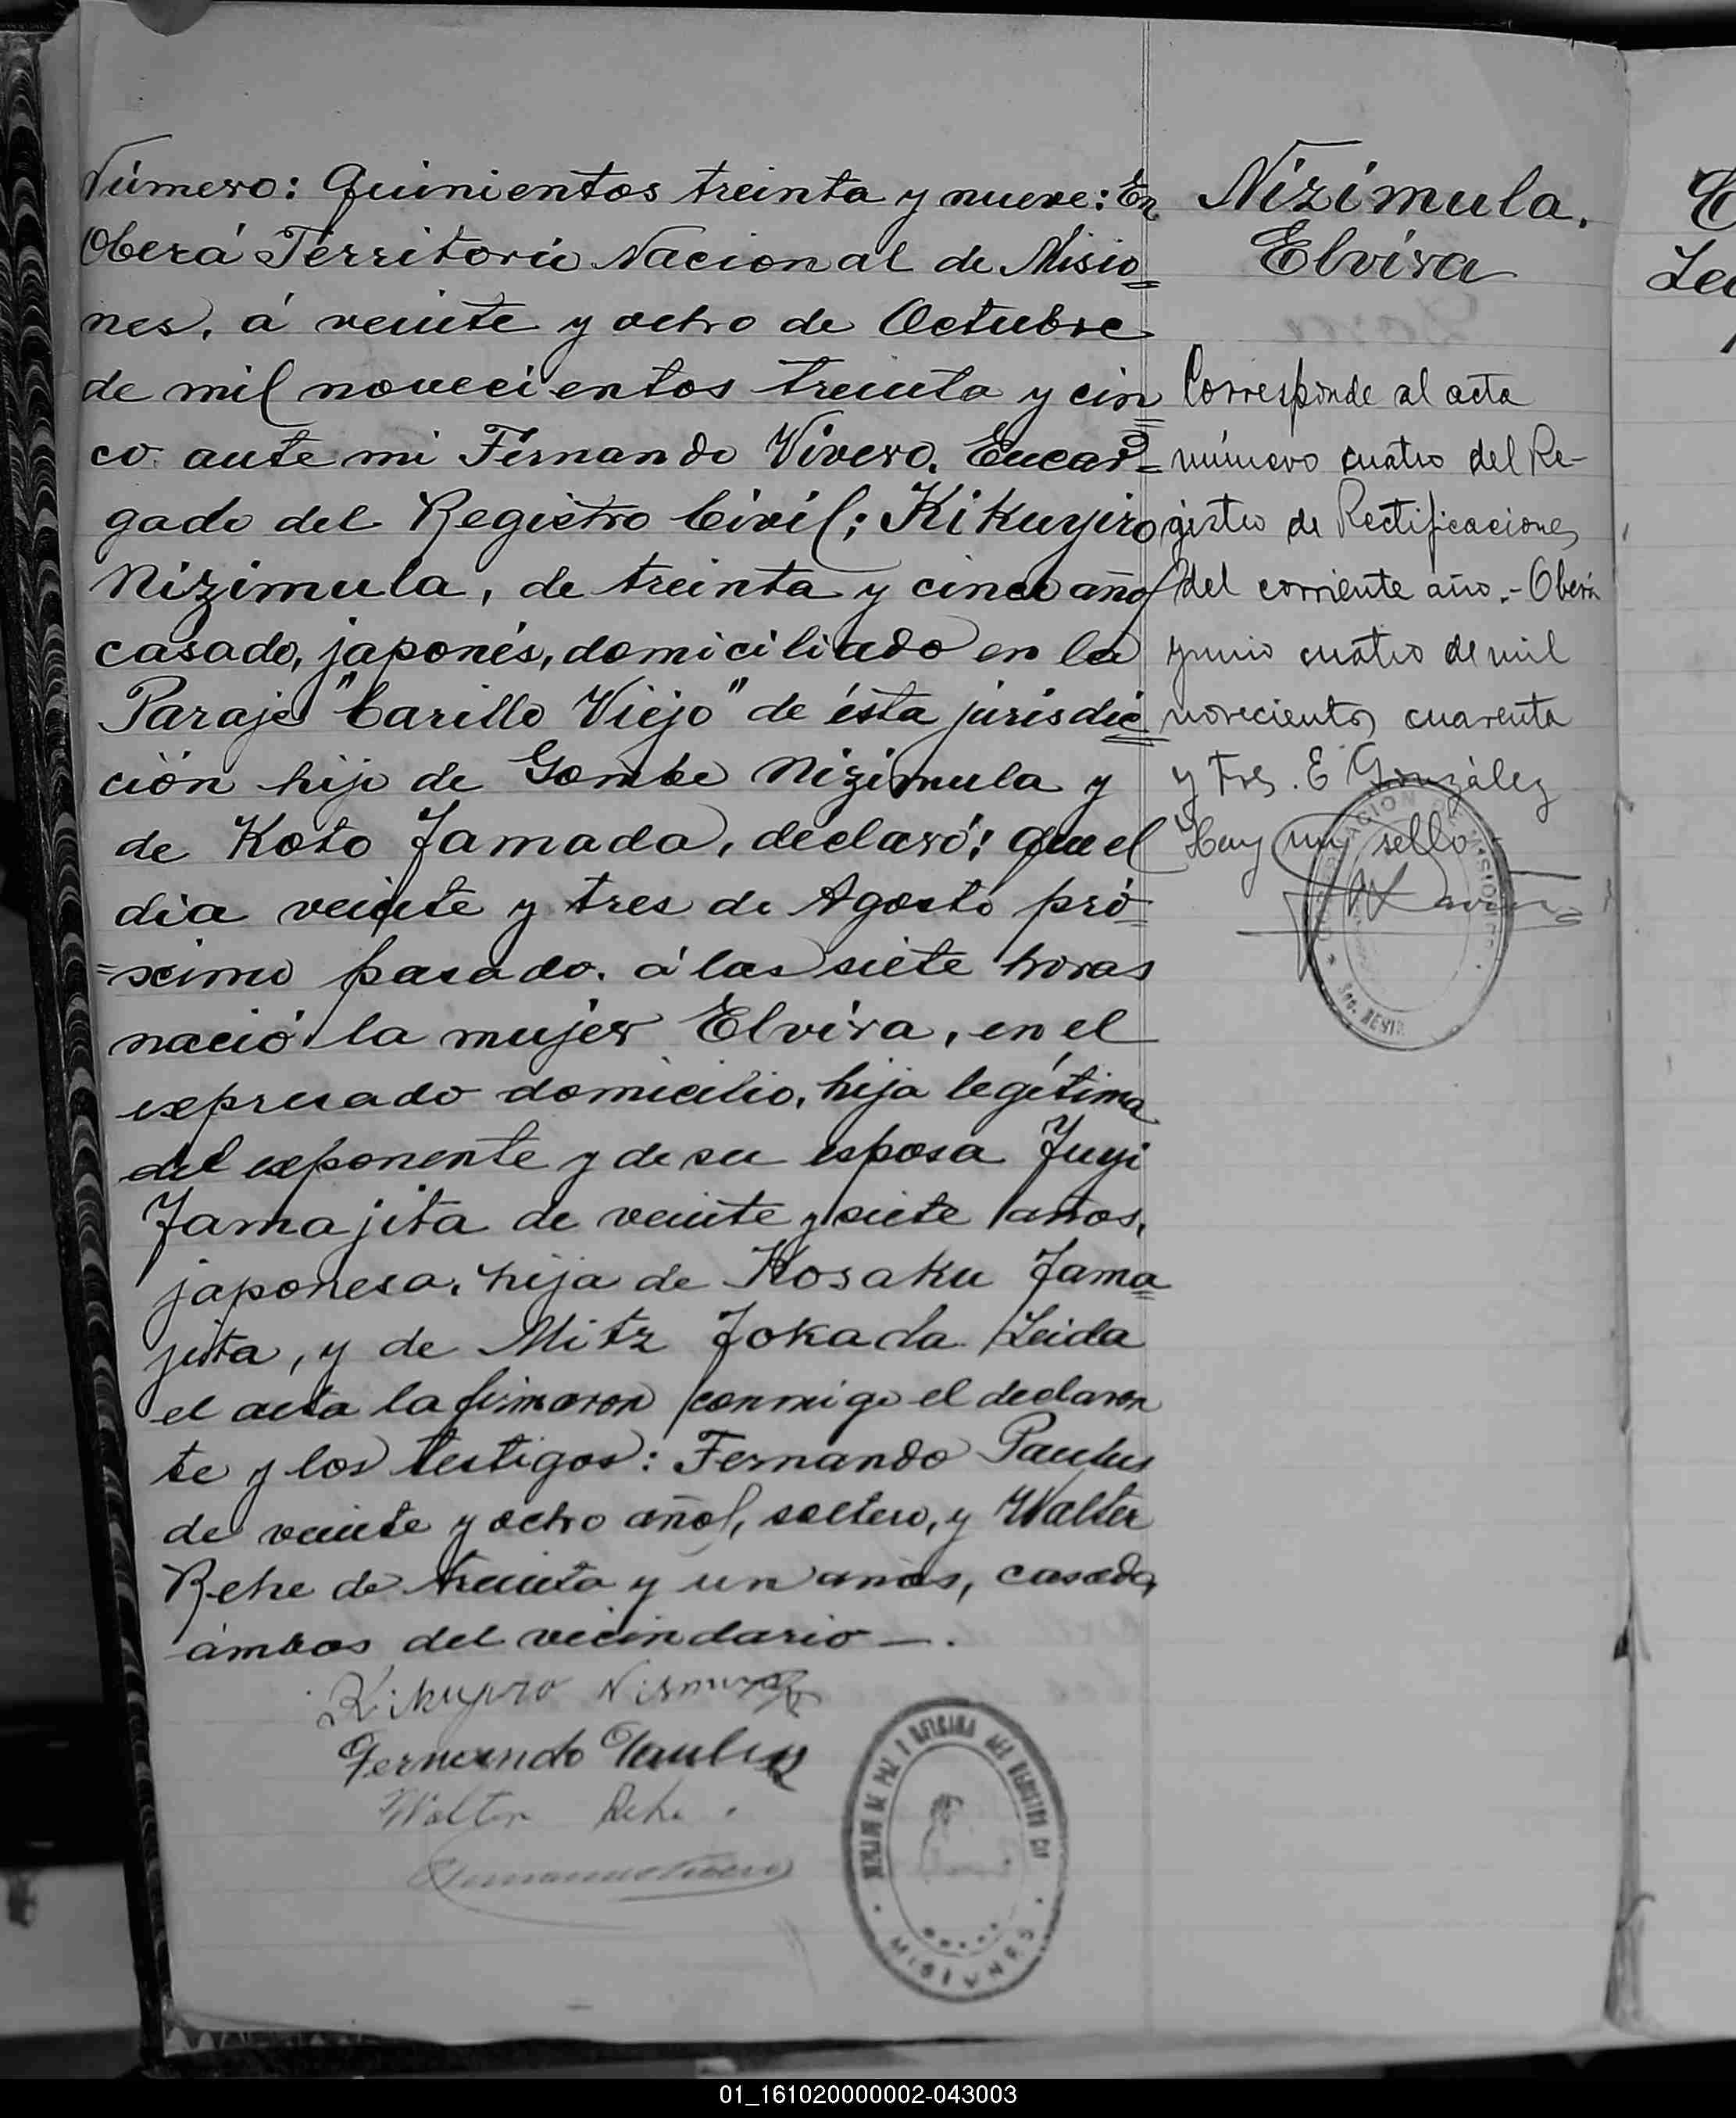 Número: Quinientos treinta y nueve: En
Oberá Territorio Nacional de Misio=
nes, á veinte y ocho de Octubre
de mil novecientos treinta y cin=
co ante mi Fernando Vivero. Encar=
gado del Registro Civil; Kikuyiro
Nizimula, de treinta y cinco años
casado, japonés, domiciliado en la
Paraje "Carillo Viejo" de ésta jurisdic=
ción hijo de Gombe Nizimula y
de Koto Jamada, declaró: que el
dia veinte y tres de Agosto pró=
=ximo pasado. á las siete horas
nació la mujer Elvira, en el
expresado domicilio, hija legítima
del exponente y de su esposa Juyi
Jamajita de veinte y siete años,
japonesa, hija de Kosaku Jama=
jita, y de Mitz Jokada. Leida
el acta la firmaron conmigo el declaran
te y los testigos: Fernando Paulus
de veinte y ocho años, soltero, y Walter
Rehe de treinta y un años, casado,
ámbos del vecindario —.
Kikuyiro
Fernando Paulus
Walter Rehe.
MISIONES
Nizimula.
Elvira
Corresponde al acta
número cuatro del Re-
gistro de Rectificaciones
del corriente año.- Oberá
junio cuatro de mil
novecientos cuarenta
y tres. E González
Hay un sello
01_161020000002-043003